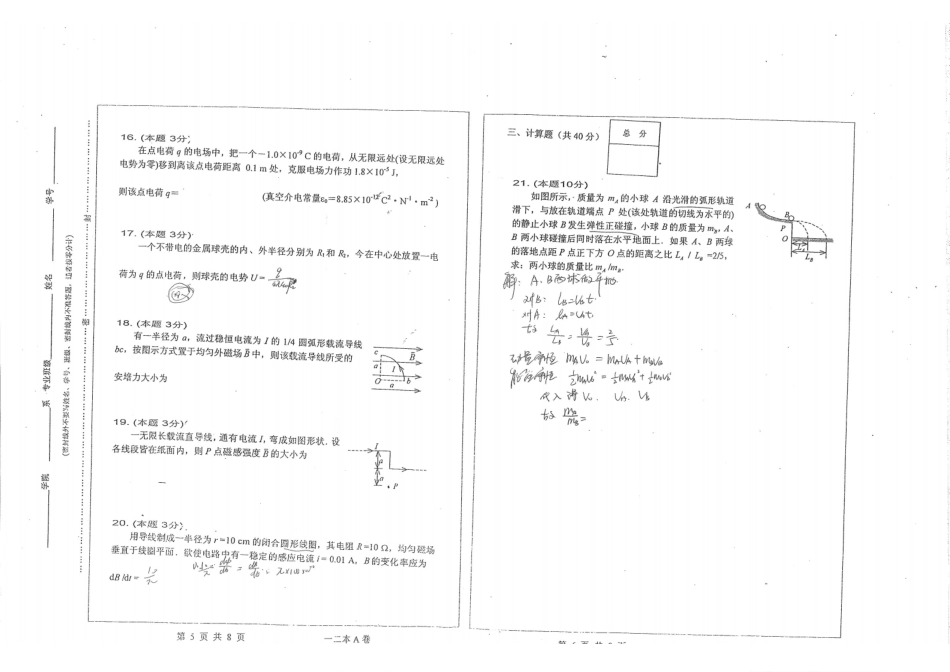 学号
姓名
系 专业班级
学院
密
封
16. (本题 3分)
在点电荷 q 的电场中，把一个－1.0×10⁻⁹ C 的电荷，从无限远处(设无限远处
电势为零)移到离该点电荷距离 0.1 m 处，克服电场力作功 1.8×10⁻⁵ J，
则该点电荷 q＝ (真空介电常量ε₀=8.85×10⁻¹²C²·N⁻¹·m⁻²)
17. (本题 3分)
一个不带电的金属球壳的内、外半径分别为 R₁和 R₂，今在中心处放置一电
荷为 q 的点电荷，则球壳的电势 U＝
18. (本题 3分)
有一半径为 a，流过稳恒电流为 I 的 1/4 圆弧形载流导线
bc，按图示方式置于均匀外磁场 B 中，则该载流导线所受的
安培力大小为
c
a
O
a
b
I
B
19. (本题 3分)
一无限长载流直导线，通有电流 I，弯成如图形状．设
各线段皆在纸面内，则 P 点磁感强度 B 的大小为
I
a
a
P
20. (本题 3分)
用导线制成一半径为 r =10 cm 的闭合圆形线圈，其电阻 R=10 Ω，均匀磁场
垂直于线圈平面．欲使电路中有一稳定的感应电流 i = 0.01 A，B 的变化率应为
dB /dt =
第 5 页 共 8 页
一二本 A 卷
三、计算题 (共 40 分)
总 分
21. (本题10分)
如图所示，质量为 mA 的小球 A 沿光滑的弧形轨道
滑下，与放在轨道端点 P 处(该处轨道的切线为水平的)
的静止小球 B 发生弹性正碰撞，小球 B 的质量为 mB，A、
B 两小球碰撞后同时落在水平地面上．如果 A、B 两球
的落地点距 P 点正下方 O 点的距离之比 LA / LB =2/5，
求：两小球的质量比 mA /mB．
A
B
P
O
LA
LB
对B: LB=VBt
对A: LA=VAt
LA/LB = VA/VB = 2/5
mAV₀ = mAVA + mBVB
代入得 V₀. VA. VB
mA/mB =